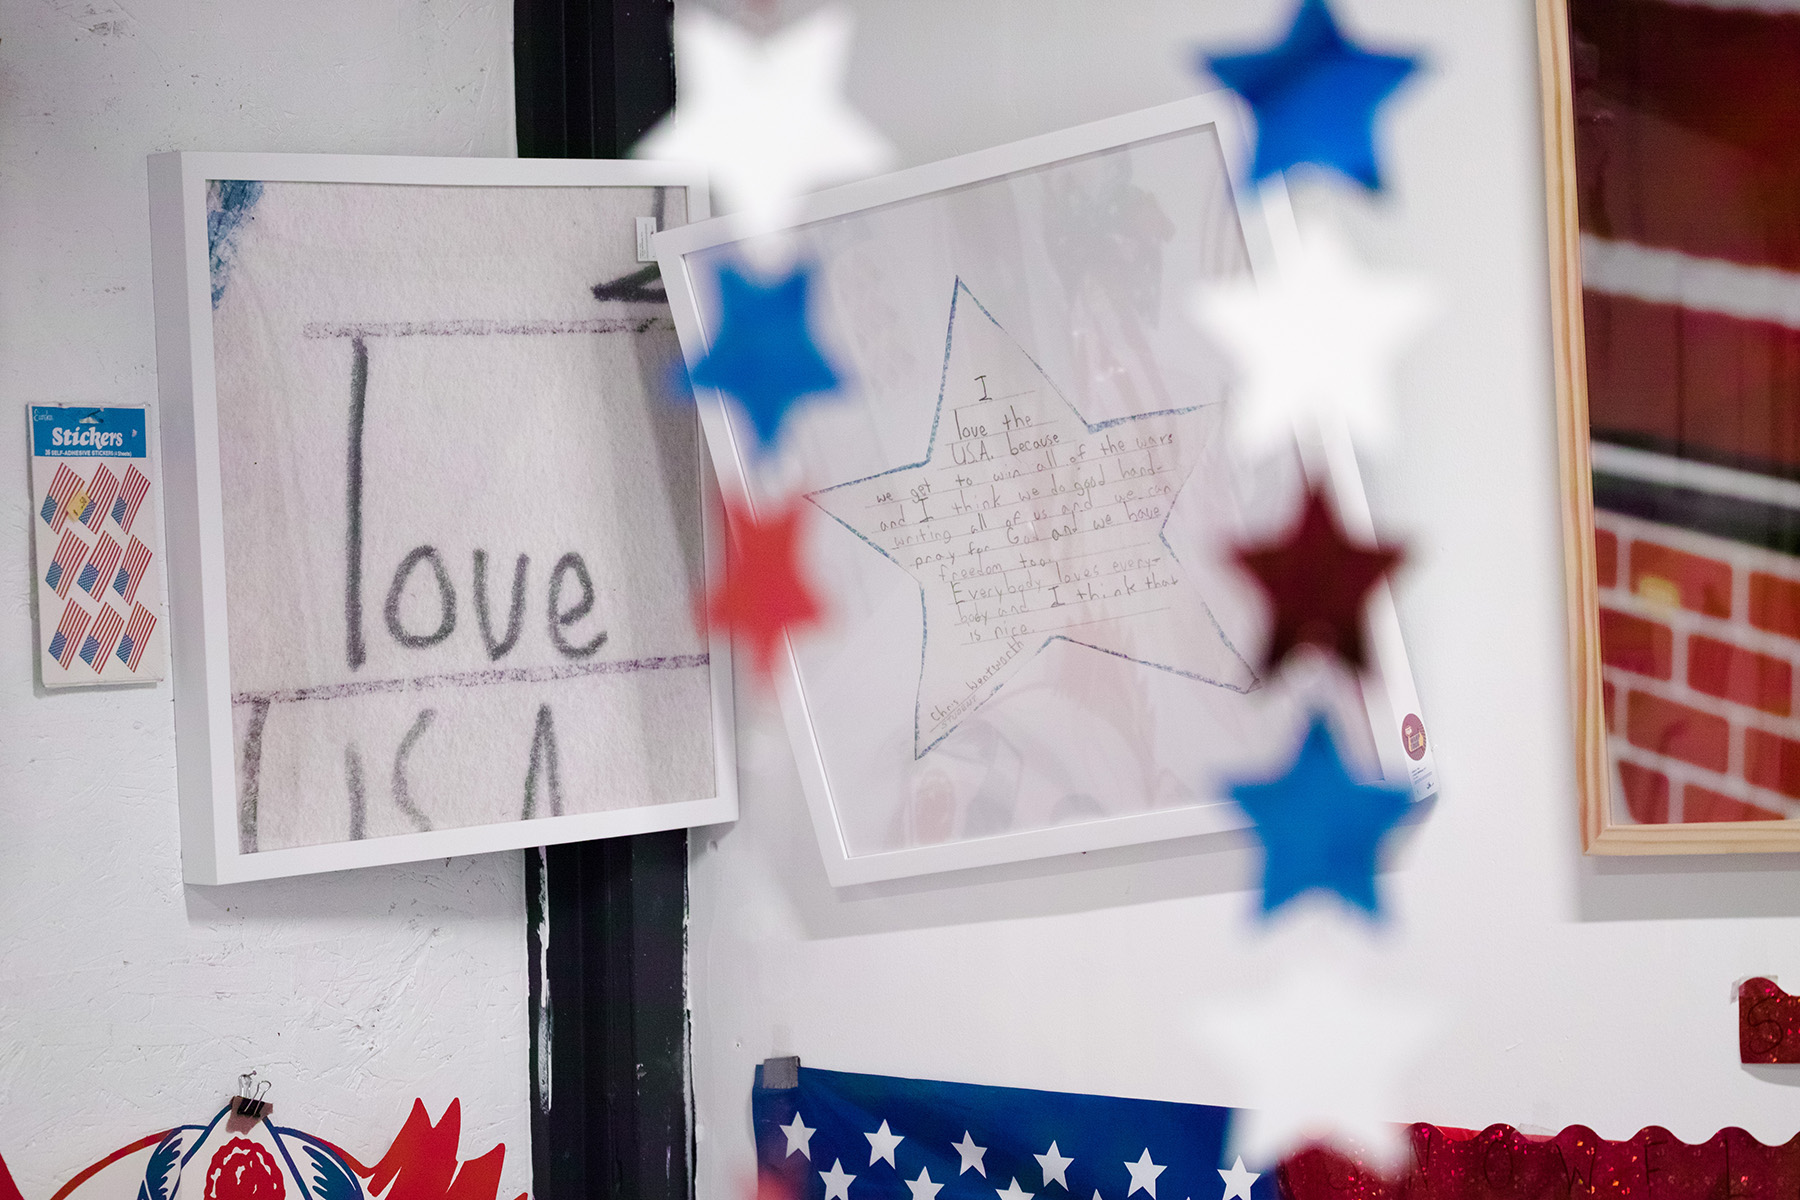 Eureka
Stickers
35 SELF-ADHESIVE STICKERS (4 Sheets)
I
love
USA
I
love the
U.S.A. because
we get to win all of the wars
and I think we do good hand-
writing all of us and we can
pray for God and we have
freedom too.
Everybody loves every-
body and I think that
is nice.
Chris Wentworth